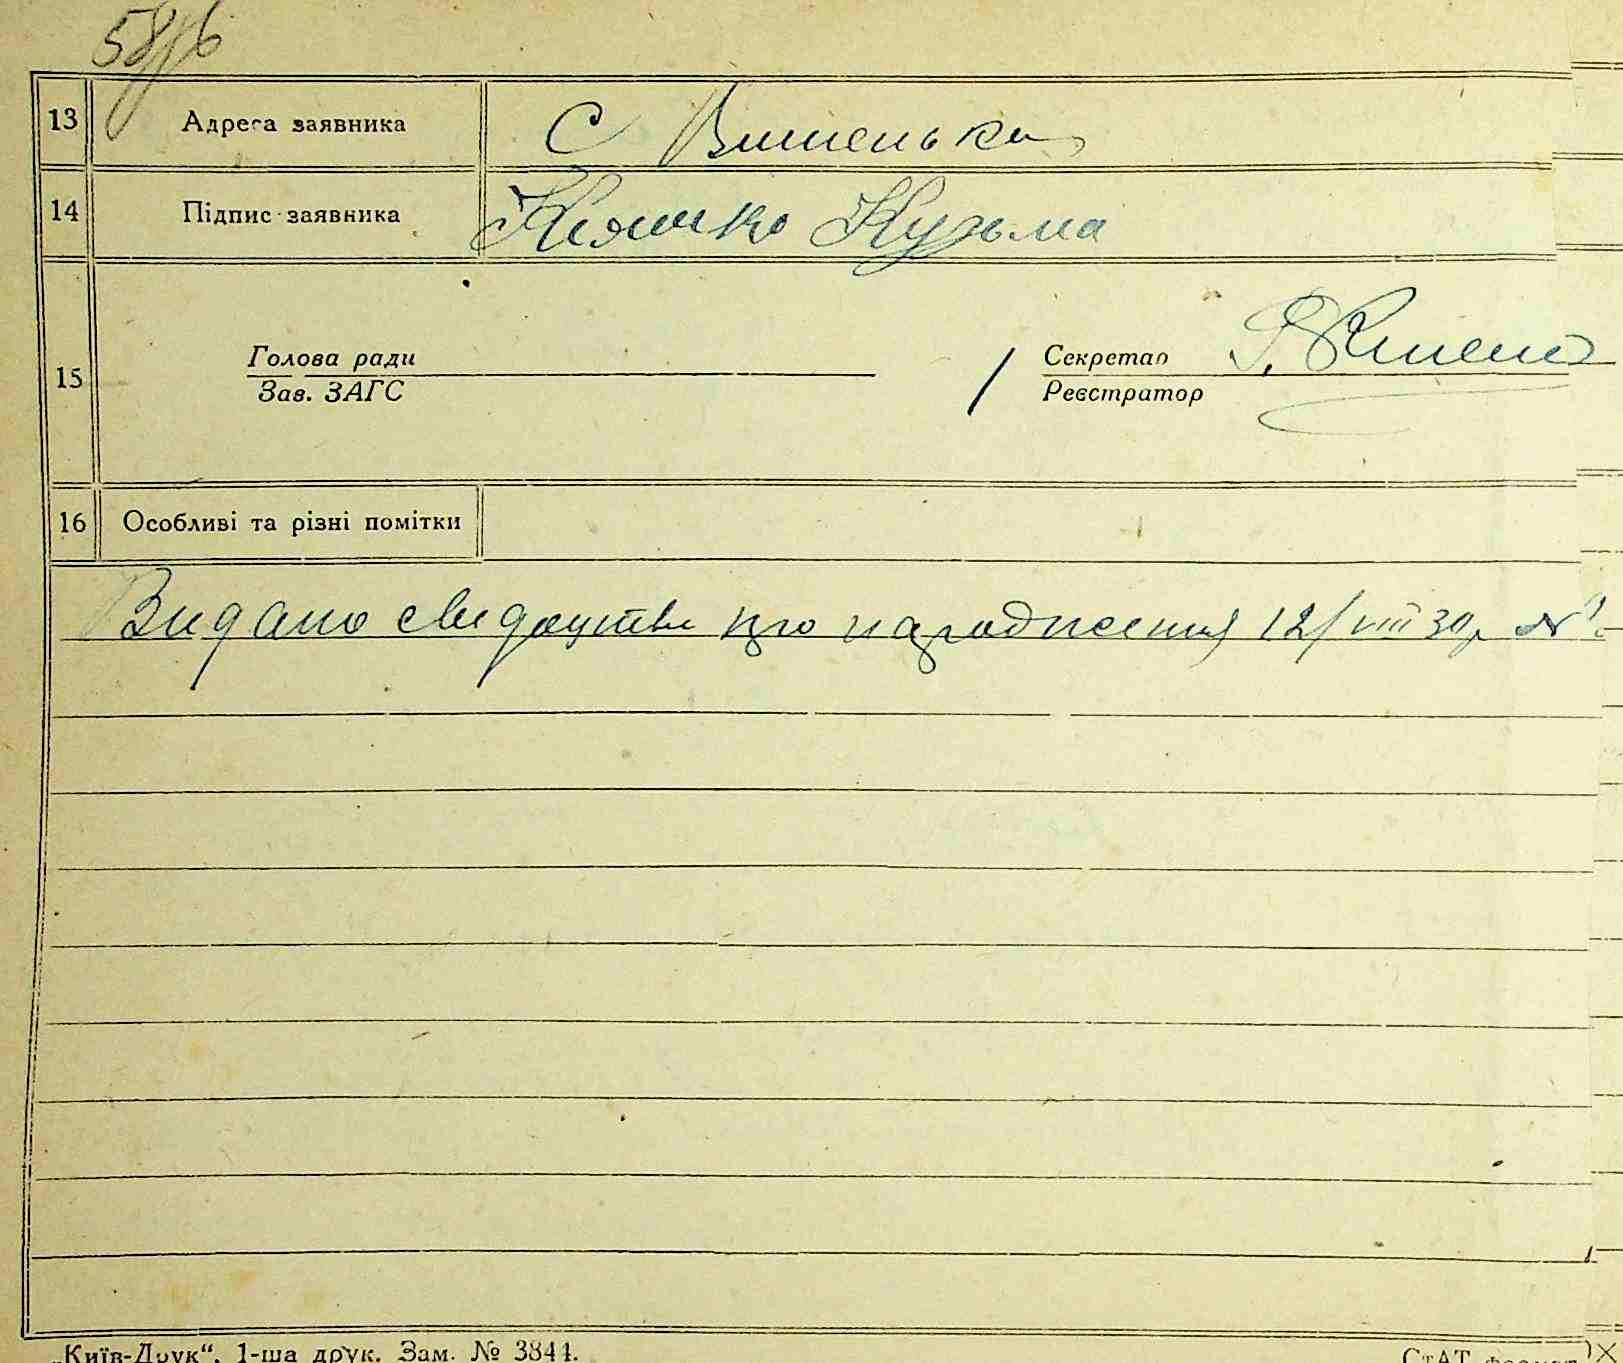 13 Адреса заявника С Вишеньки
14 Підпис заявника Кияшко Кузьма
15 Голова ради Секретар
Зав. ЗАГС Реєстратор
16 Особливі та різні помітки
Видано свидоцтво про народження 12/VIII 30р. №
„Київ-Друк“. 1-ша друк. Зам. № 3844. СтАТ формат